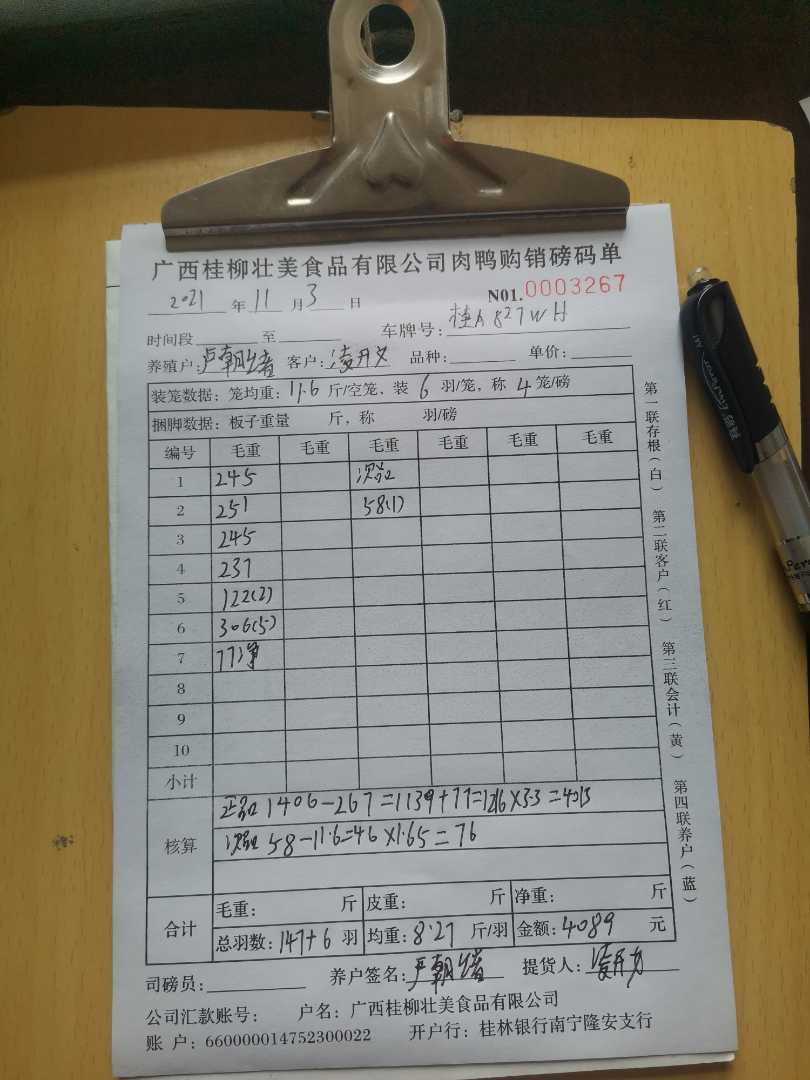 广西桂柳壮美食品有限公司肉鸭购销磅码单
2021 年 11 月 3 日 N01.0003267
时间段 至 车牌号: 桂A827WH
养殖户: 卢朝 客户: 凌开 品种: 单价:
装笼数据: 笼均重: 11.6 斤/空笼、装 6 羽/笼, 称 4 笼/磅
捆脚数据: 板子重量 斤, 称 羽/磅
编号 毛重 毛重 毛重 毛重 毛重 毛重
1 245 次品
2 251 58(1)
3 245
4 237
5 122(2)
6 306(5)
7 77净
8
9
10
小计
核算 正品 1406-267=1139+77=1216×3.3=4013
次品 58-11.6=46×1.65=76
合计 毛重: 斤 皮重: 斤 净重: 斤
总羽数: 147+6 羽 均重: 8.27 斤/羽 金额: 4089 元
司磅员: 养户签名: 朝 提货人: 凌开
公司汇款账号: 户名: 广西桂柳壮美食品有限公司
账 户: 660000014752300022 开户行: 桂林银行南宁隆安支行
第一联存根(白) 第二联客户(红) 第三联会计(黄) 第四联养户(蓝)